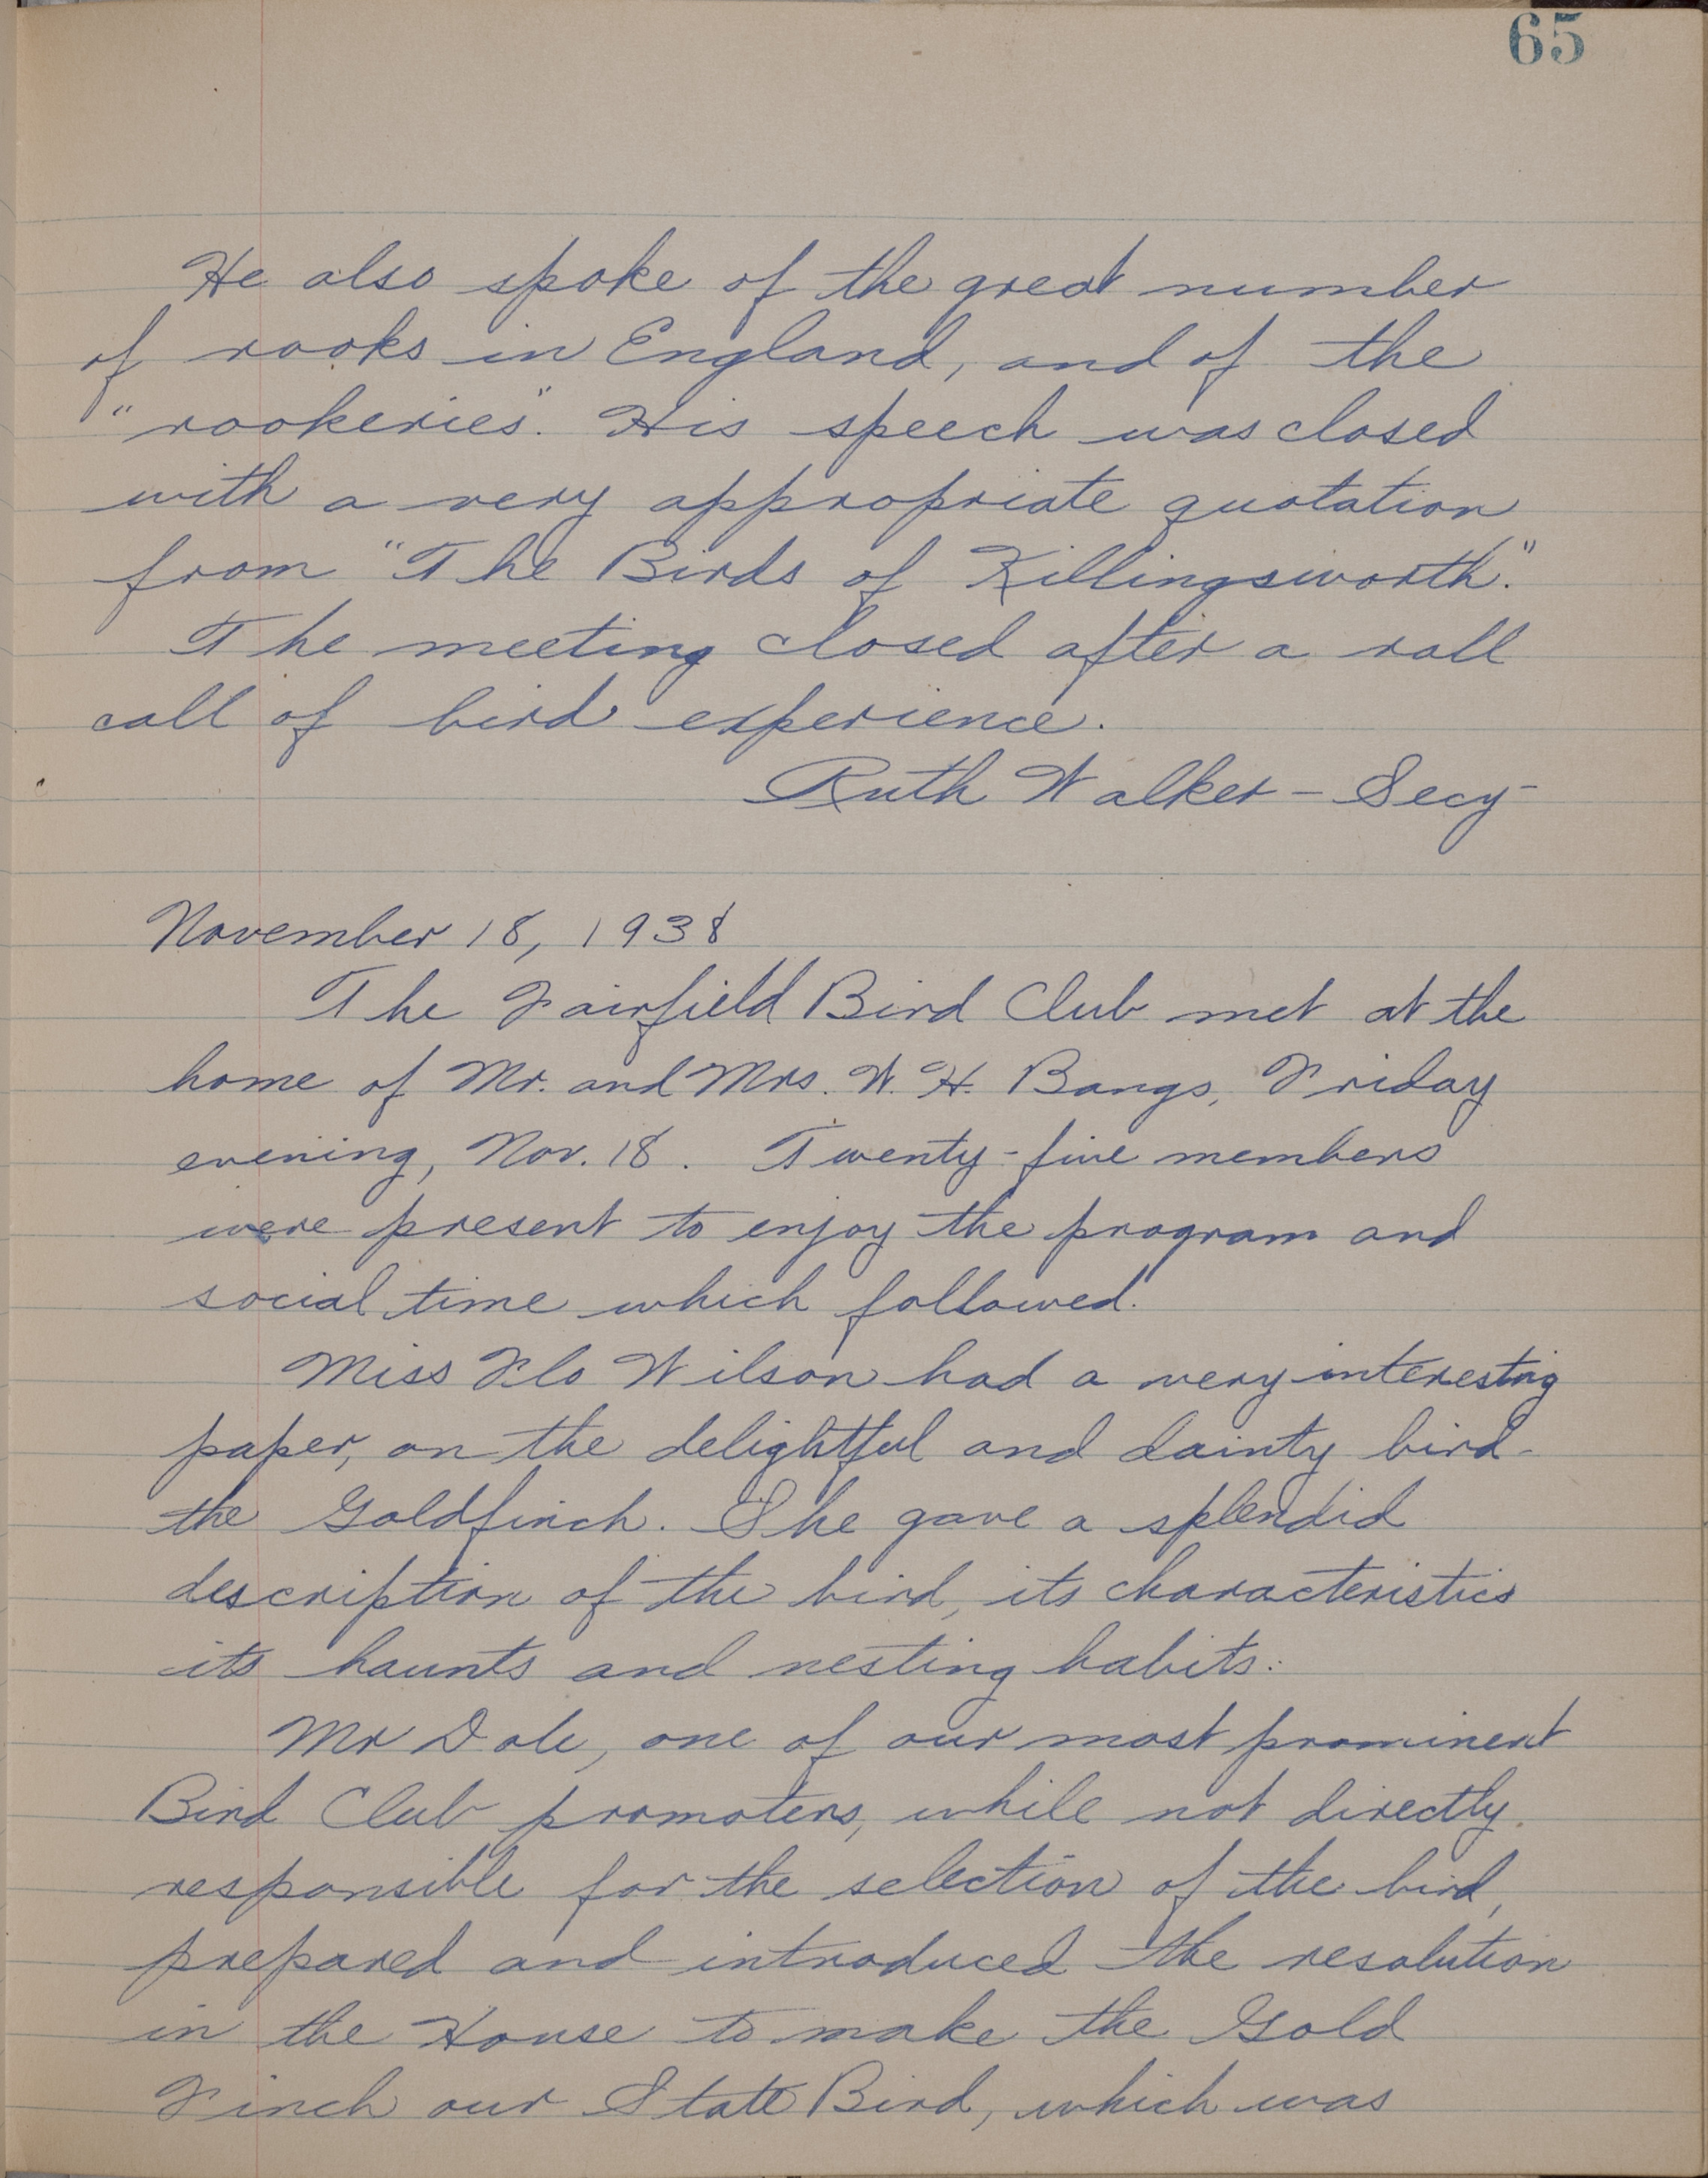 65
He also spoke of the great number
of rooks in England, and of the
"rookeries". His speech was closed
with a very appropriate quotation
from "The Birds of Killingsworth."
The meeting closed after a roll
call of bird experience.
Ruth Walker - Secy -
November 18, 1938
The Fairfield Bird Club met at the
home of Mr. and Mrs. W. H. Bangs, Friday
evening, Nov. 18. Twenty-five members
were present to enjoy the program and
social time which followed.
Miss Flo Wilson had a very interesting
paper, on the delightful and dainty bird -
the Goldfinch. She gave a splendid
description of the bird, its characteristics
its haunts and nesting habits.
Mr Dole, one of our most prominent
Bird Club promoters, while not directly
responsible for the selection of the bird,
prepared and introduced the resolution
in the House to make the Gold
Finch our State Bird, which was